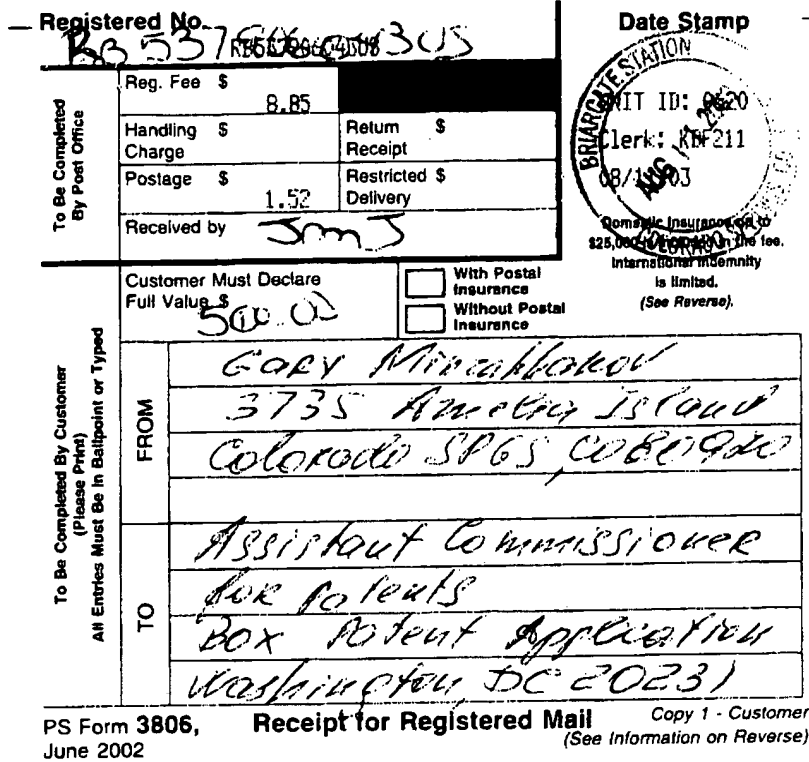 Registered No.
Date Stamp
To Be Completed By Post Office
Reg. Fee $ 8.85
Handling Charge $
Return Receipt $
Postage $ 1.52
Restricted Delivery $
Received by
BRIARGATE STATION
UNIT ID: 0620
Clerk: KDF211
AUG
COLORADO
Domestic Insurance up to
$25,000 is included in the fee.
International Indemnity
is limited.
(See Reverse).
Customer Must Declare
Full Value $ 500.00
With Postal Insurance
Without Postal Insurance
To Be Completed By Customer
(Please Print)
All Entries Must Be in Ballpoint or Typed
FROM
Gary
3735 Amelia Island
Colorado SPGS, CO 80920
TO
Assistant Commissioner
for patents
Box Patent Application
Washington, DC 20231
PS Form 3806,
June 2002
Receipt for Registered Mail
Copy 1 - Customer
(See Information on Reverse)